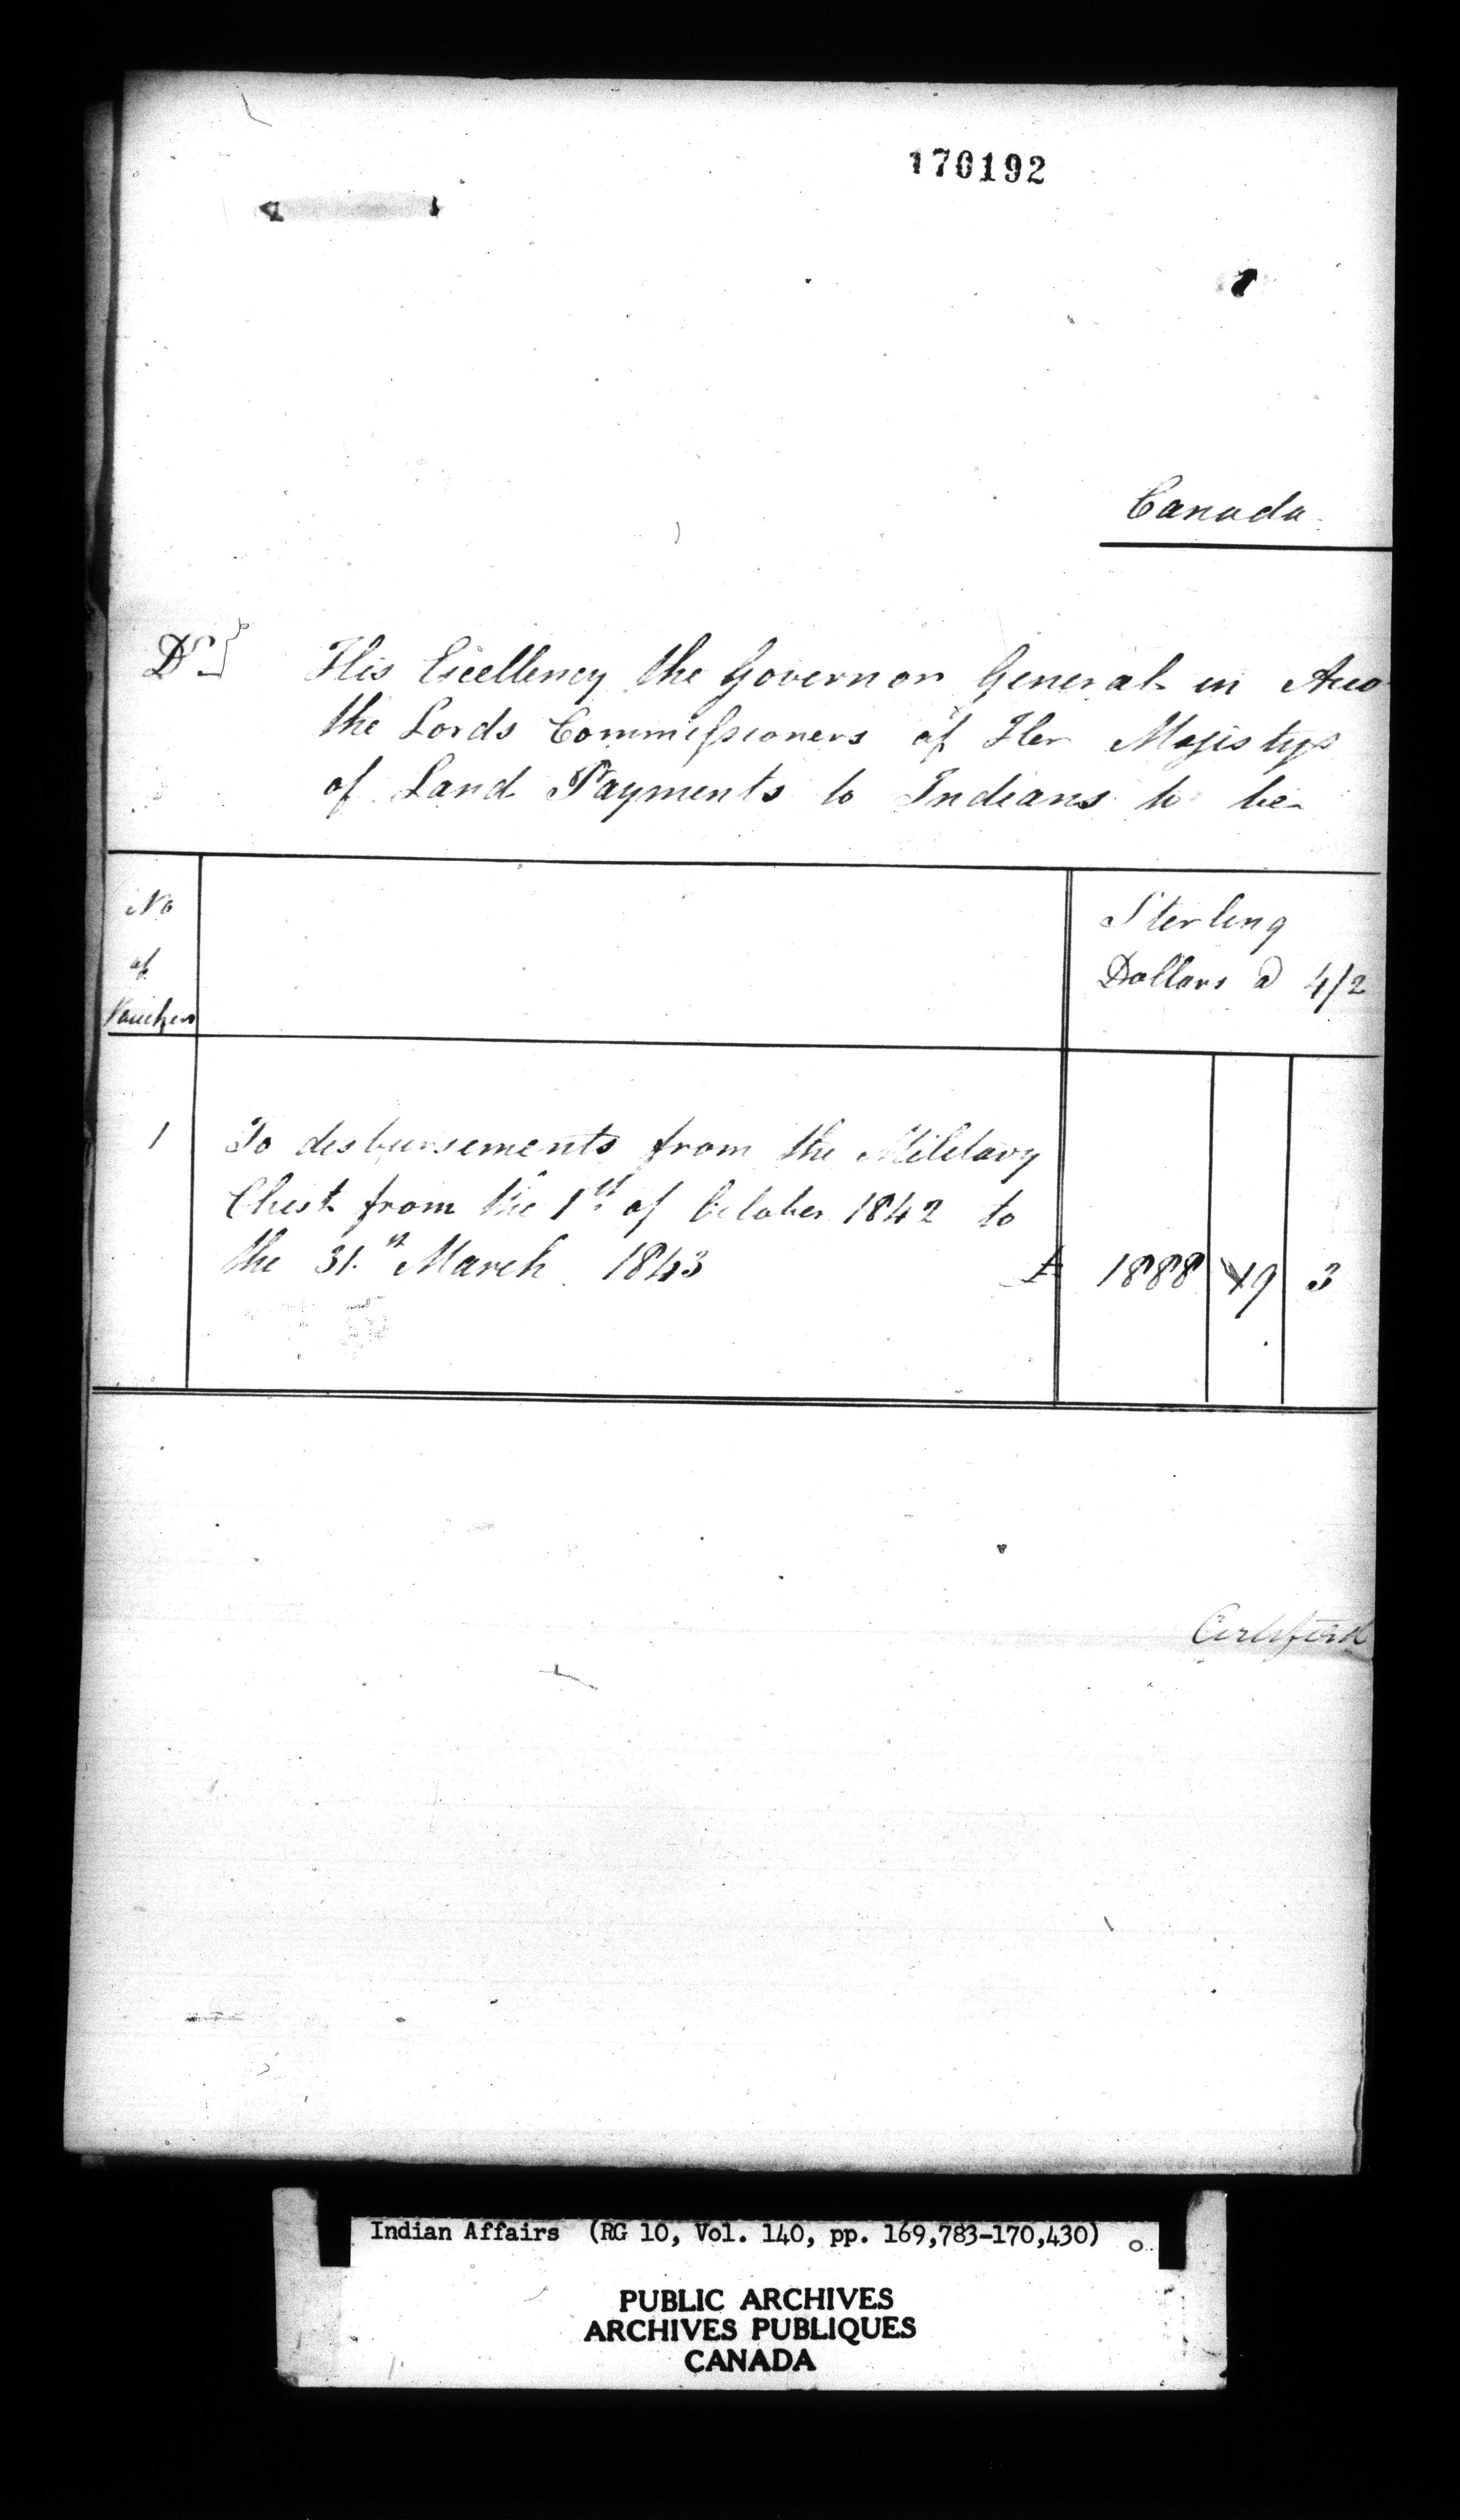 170192
Canada.
Dr. His Excellency the Governor General in Acco
the Lords Commissioners of Her Majestys
of Land Payments to Indians to be
No
of
Vouchers
Sterling
Dollars @ 4/2
1 To disbursements from the Military
Chest from the 1st of October 1842 to
the 31st March 1843 £ 1888 19 3
Certified
Indian Affairs (RG 10, Vol. 140, pp. 169,783-170,430)
PUBLIC ARCHIVES
ARCHIVES PUBLIQUES
CANADA